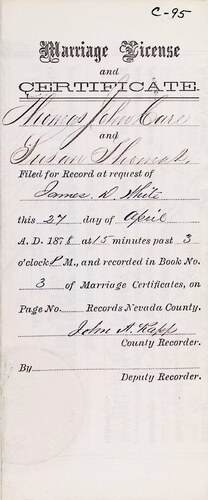 C-95
Marriage License
and
CERTIFICATE.
Thomas John Carr
and
Susan Thomas.
Filed for Record at request of
James D. White
this 27 day of April
A. D. 1878 at 15 minutes past 3
o'clock P M., and recorded in Book No.
3 of Marriage Certificates, on
Page No. Records Nevada County.
John A. Rapp
County Recorder.
By
Deputy Recorder.